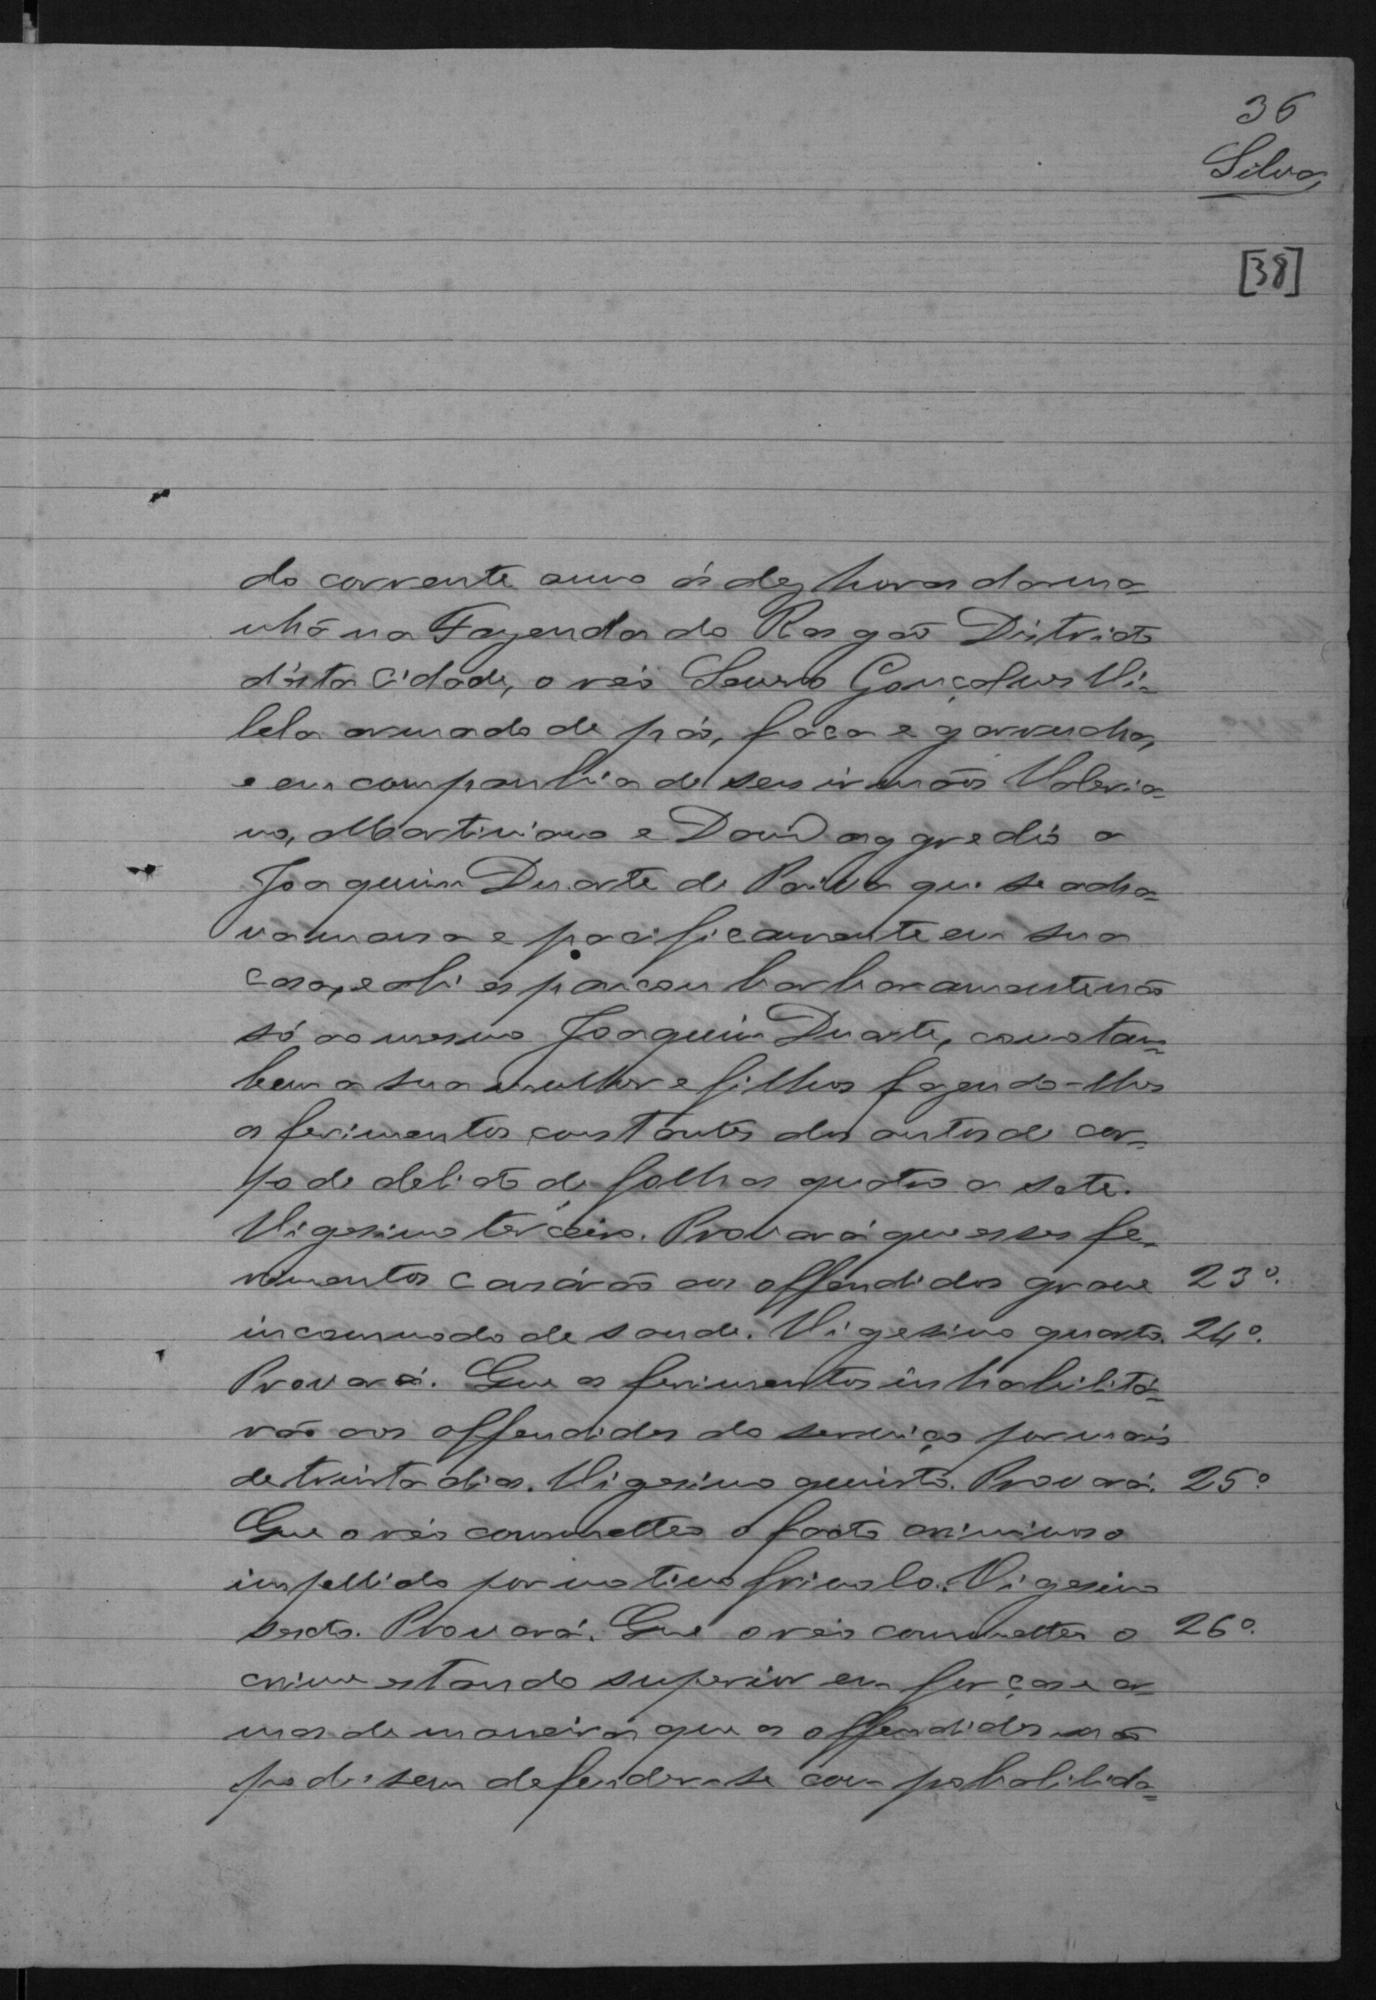 36
Silva
[38]
do corrente anno ás dez horas da ma=
nhã na Fazenda do Rasgão Districto
d'esta Cidade, o réo Lauro Gonçalves Vi=
lela armado de páo, faca e garrucha,
e em companhia de seus irmãos Valeria=
no, Martiniano e David aggredio a
Joaquim Duarte de Paiva que se acha=
va mansa e pacificamente em sua
casa, e ahi espancou barbaramente não
só ao mesmo Joaquim Duarte, como tam=
bem a sua mulher e filhos fazendo-lhes
os ferimentos constantes dos autos de cor=
po de delicto de folhas quatro a sete.
Vigesimo terceiro. Provará que esses fe=
rimentos causárão aos offendidos grave 23º.
incommodo de saude. Vigesimo quarto. 24º.
Provará. Que os ferimentos inhabilitá=
rão aos offendidos do serviço por mais
de trinta dias. Vigesimo quinto. Provará. 25º
Que o réo commetteo o facto criminoso
impellido por motivo frivolo. Vigesimo
sexto. Provará. Que o réo commetteo o 26º.
crime estando superior em forças e ar
mas de maneira que os offendidos não
podessem defender-se com probabilida=